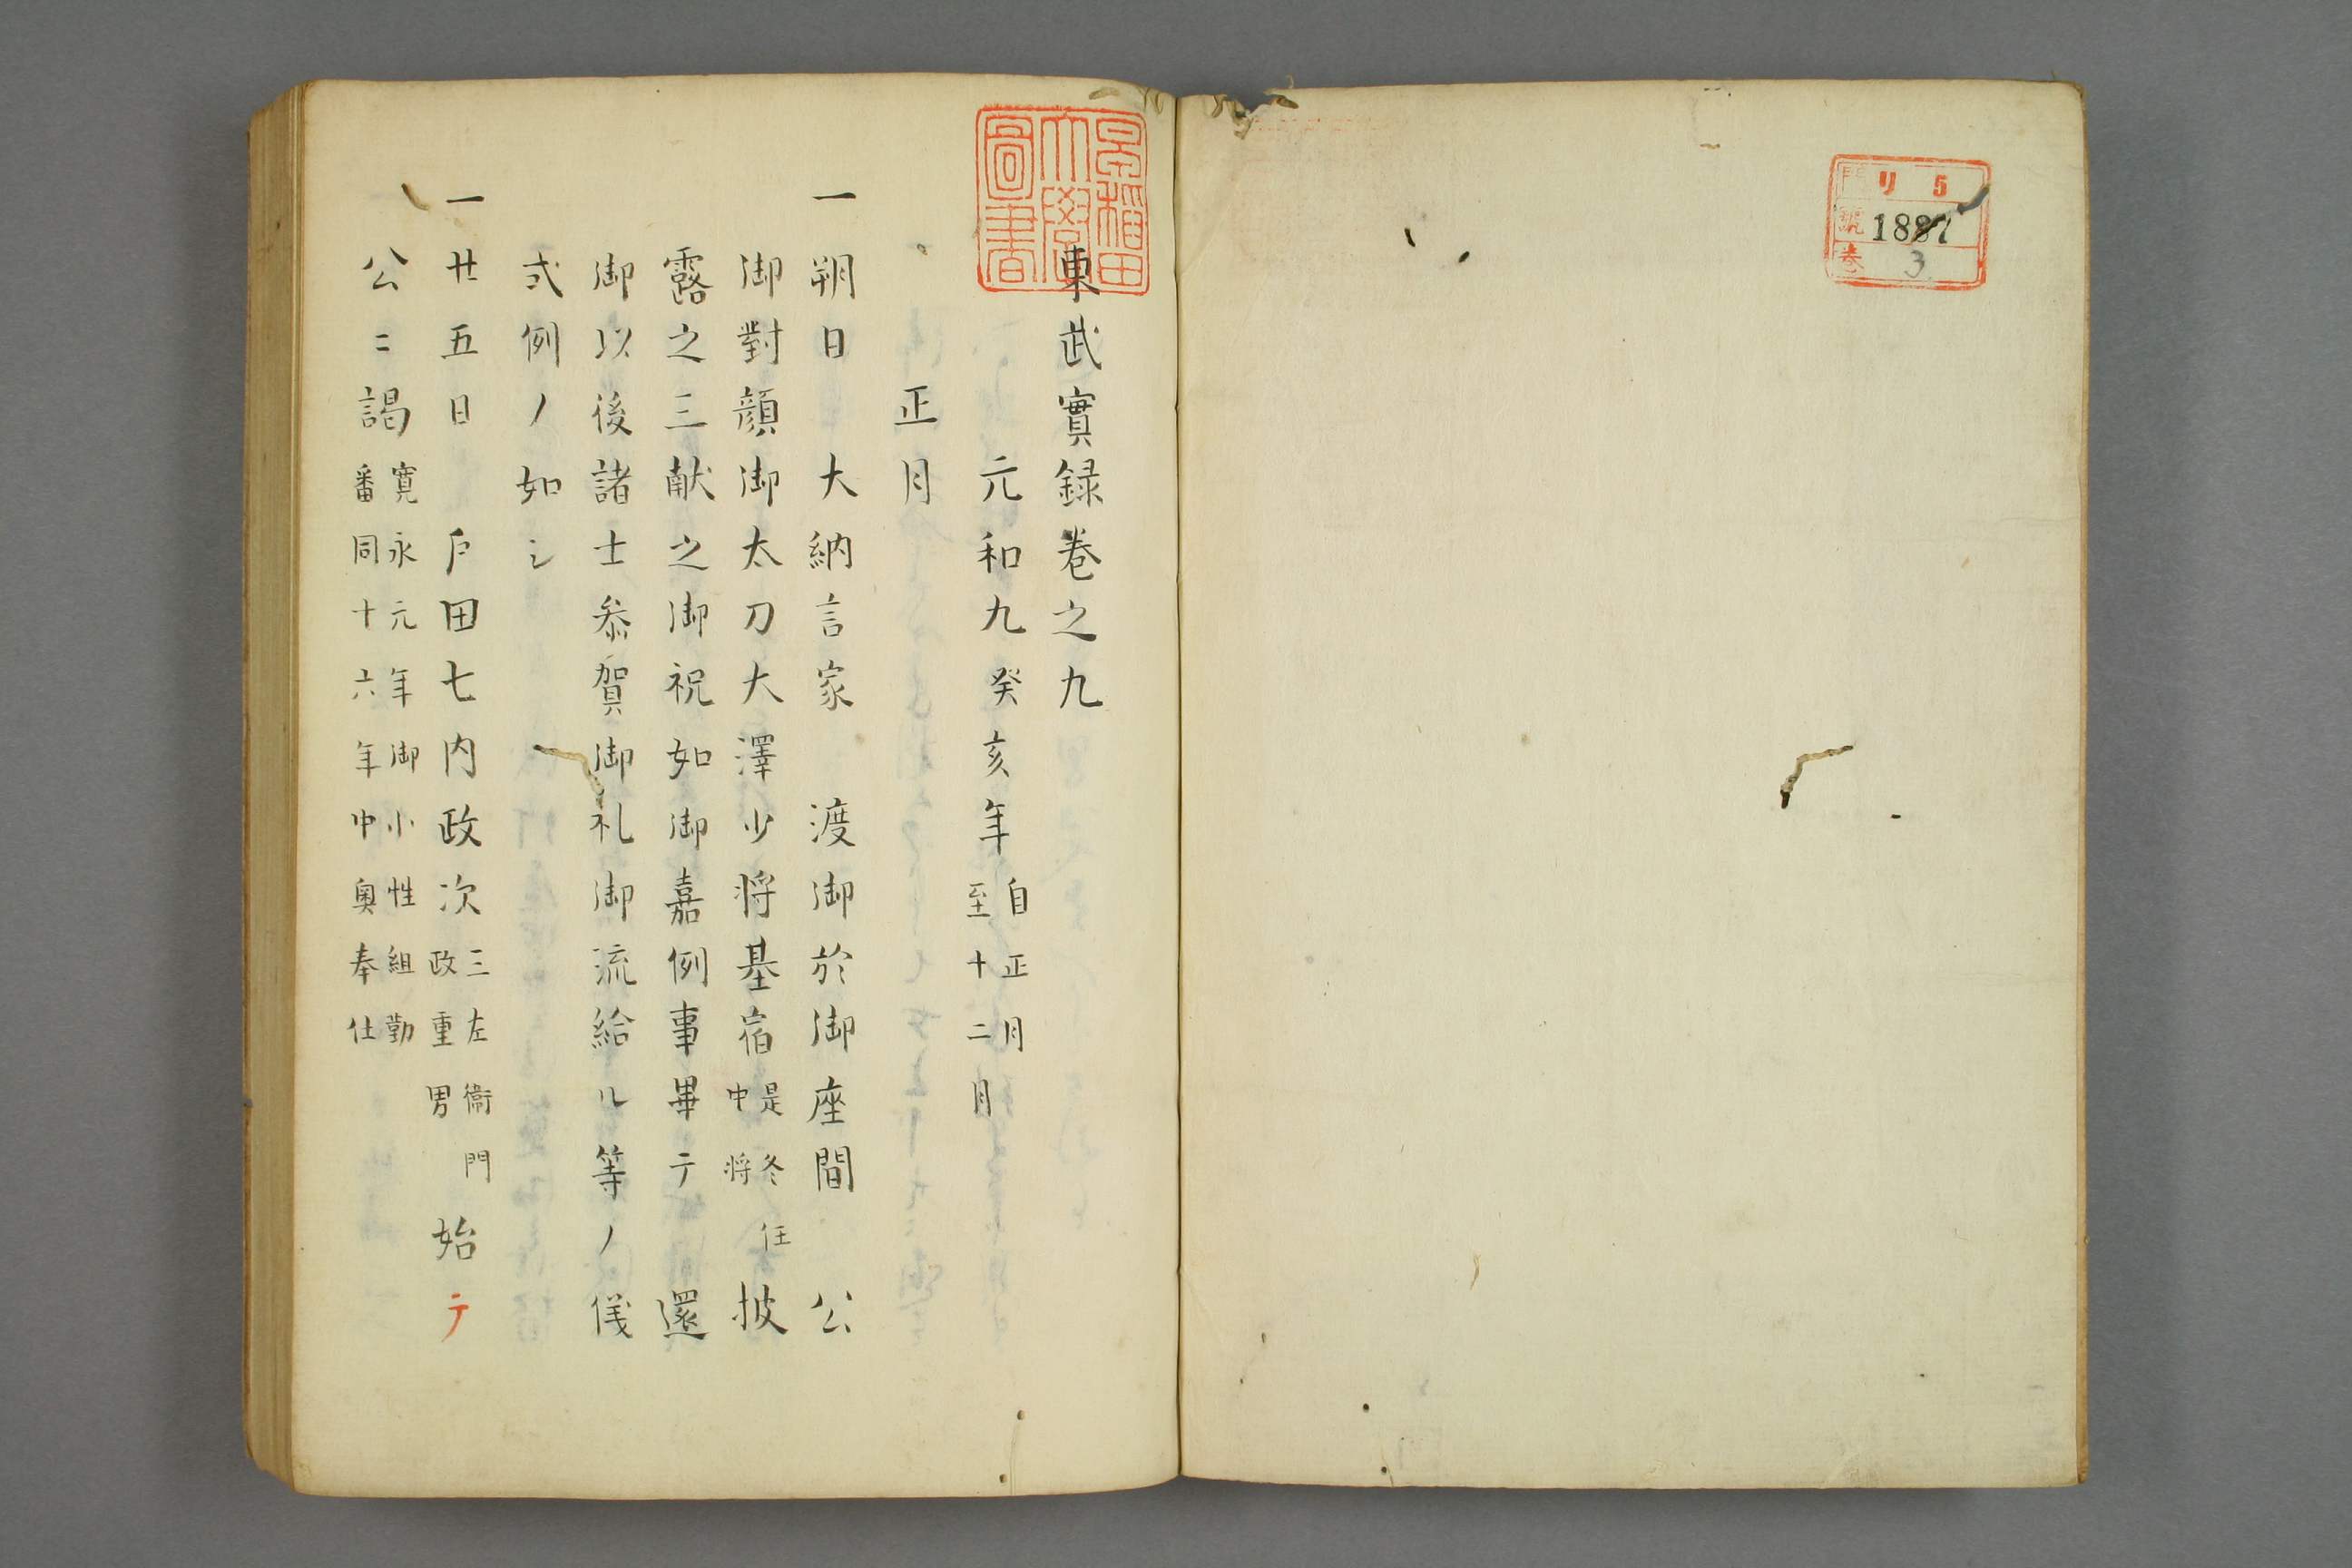 門 リ 5
號 1887
巻 3
早稲田大學圖書
東武實録巻之九
元和九癸亥年 自正月
至十二月
正月
一朔日 大納言家 渡御於御座間 公
御對顔御太刀大澤少将基宿 是冬任
中将
披
露之三献之御祝如御嘉例事畢テ 還
御以後諸士叅賀御礼御流給ル等ノ儀
式例ノ如シ
一廿五日 戸田七内政次 三左衛門
政重男
始テ
公ニ謁 寛永元年御小性組勤
番同十六年中奥奉仕